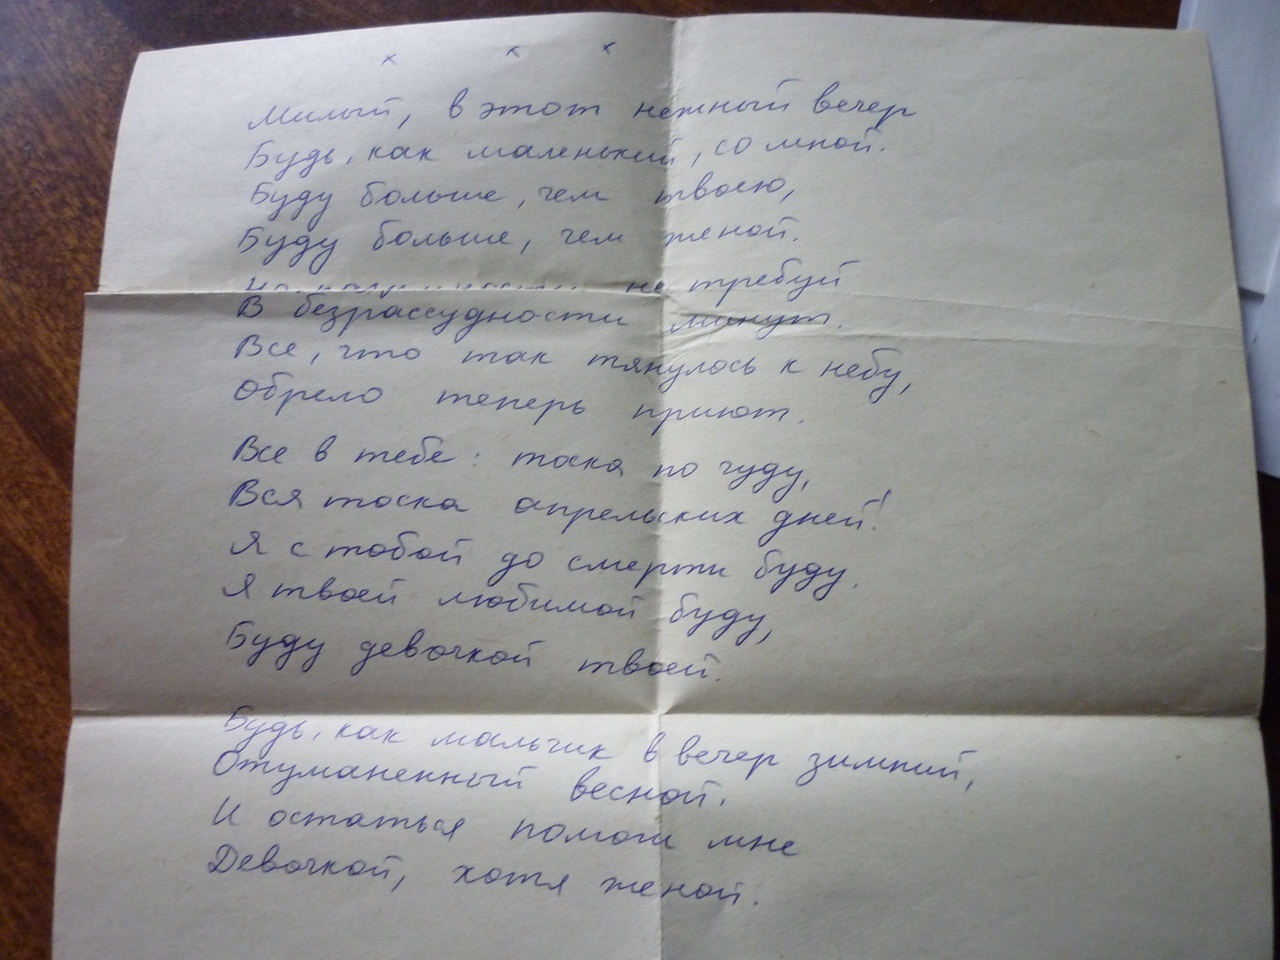 х х х
Милый, в этот нежный вечер
Будь, как маленький, со мной.
Буду больше, чем твоею,
Буду больше, чем женой.
не требуй
В безрассудности минут.
Все, что так тянулось к небу,
Обрело теперь приют.
Все в тебе: тоска по чуду,
Вся тоска апрельских дней!
Я с тобой до смерти буду.
Я твоей любимой буду,
Буду девочкой твоей.
Будь, как мальчик в вечер зимний,
Отуманенный весной.
И остаться помоги мне
Девочкой, хотя женой.